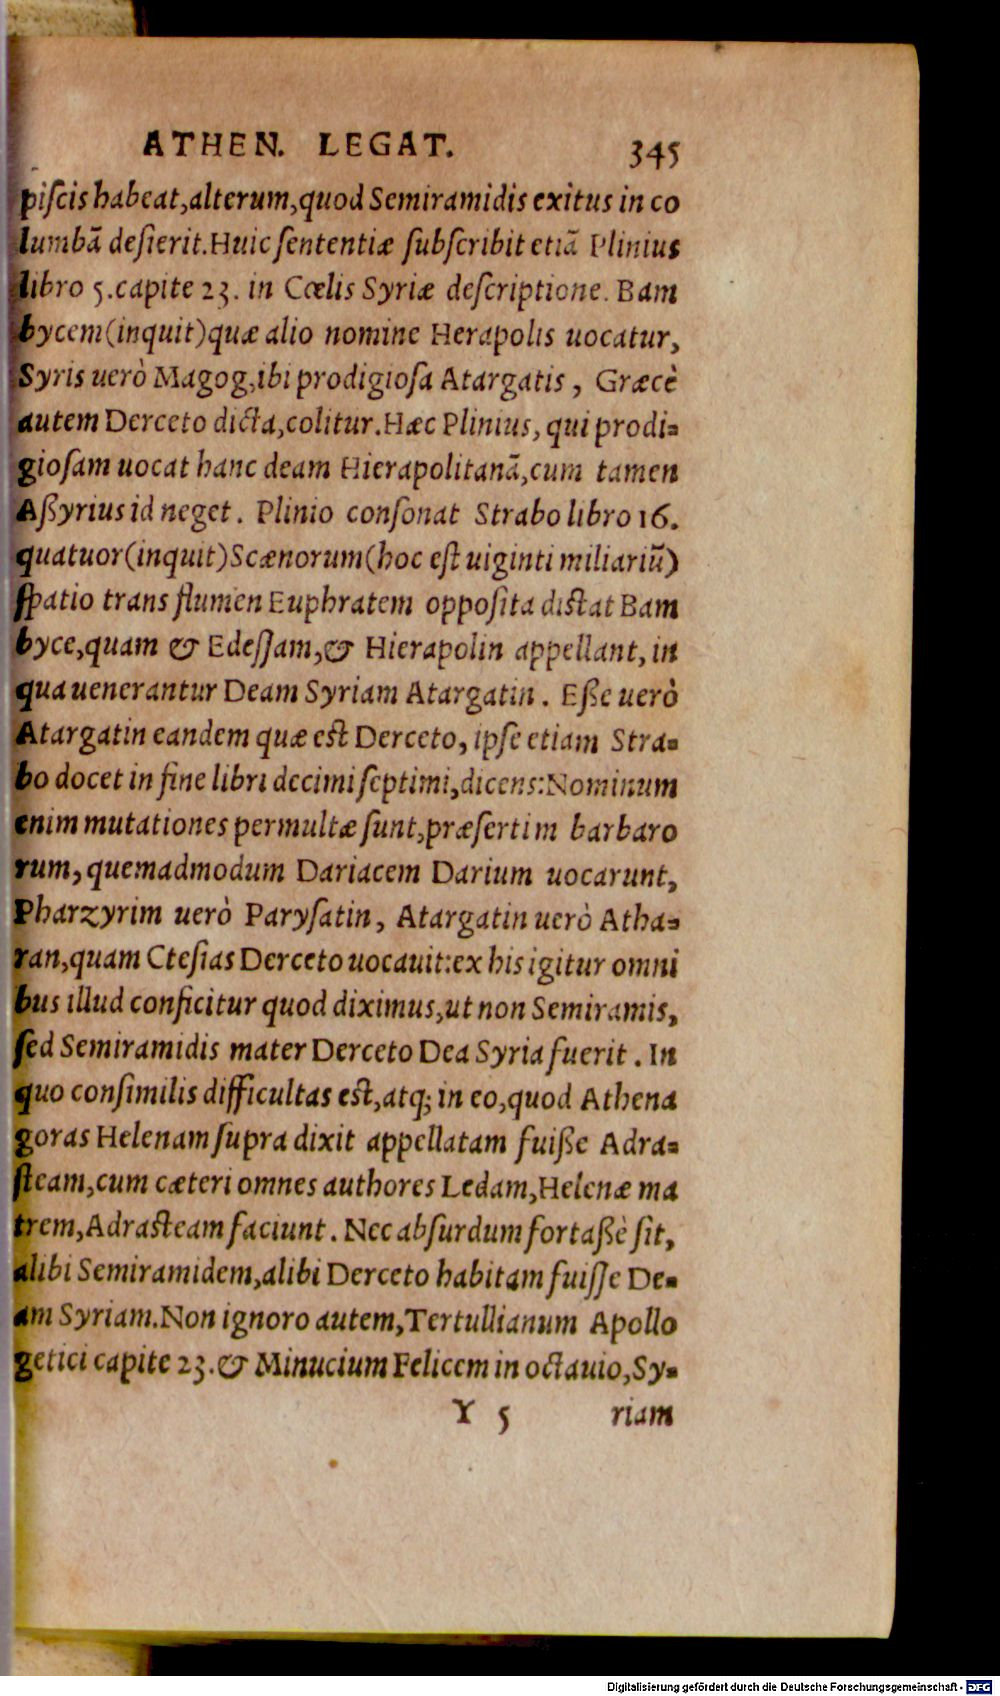 ATHEN. LEGAT. 345
piſcis habeat,alterum,quod Semiramidis exitus in co
lumbā deſierit.Huic ſententiæ ſubſcribit etiā Plinius
libro 5.capite 23. in Cœlis Syriæ deſcriptione. Bam
bycem(inquit)quæ alio nomine Herapolis uocatur,
Syris uerò Magog,ibi prodigioſa Atargatis, Græcè
autem Derceto dicta,colitur.Hæc Plinius, qui prodi-
gioſam uocat hanc deam Hierapolitanā,cum tamen
Aßyrius id neget. Plinio conſonat Strabo libro 16.
quatuor(inquit)Scænorum(hoc eſt uiginti miliariū)
ſpatio trans flumen Euphratem oppoſita diſtat Bam
byce,quam & Edeſſam,& Hierapolin appellant, in
qua uenerantur Deam Syriam Atargatin. Eße uerò
Atargatin eandem quæ eſt Derceto, ipſe etiam Stra-
bo docet in fine libri decimi ſeptimi,dicens:Nominum
enim mutationes permultæ ſunt,præſertim barbaro
rum, quemadmodum Dariacem Darium uocarunt,
Pharzyrim uerò Paryſatin, Atargatin uerò Atha-
ran,quam Cteſias Derceto uocauit:ex his igitur omni
bus illud conficitur quod diximus,ut non Semiramis,
ſed Semiramidis mater Derceto Dea Syria fuerit. In
quo conſimilis difficultas eſt,atq; in eo,quod Athena
goras Helenam ſupra dixit appellatam fuiße Adra-
ſteam,cum cæteri omnes authores Ledam,Helenæ ma
trem,Adraſteam faciunt. Nec abſurdum fortaßè ſit,
alibi Semiramidem,alibi Derceto habitam fuiſſe De-
am Syriam.Non ignoro autem,Tertullianum Apollo
getici capite 23.& Minucium Felicem in octauio,Sy-
Y 5 riam
Digitalisierung gefördert durch die Deutsche Forschungsgemeinschaft - DFG